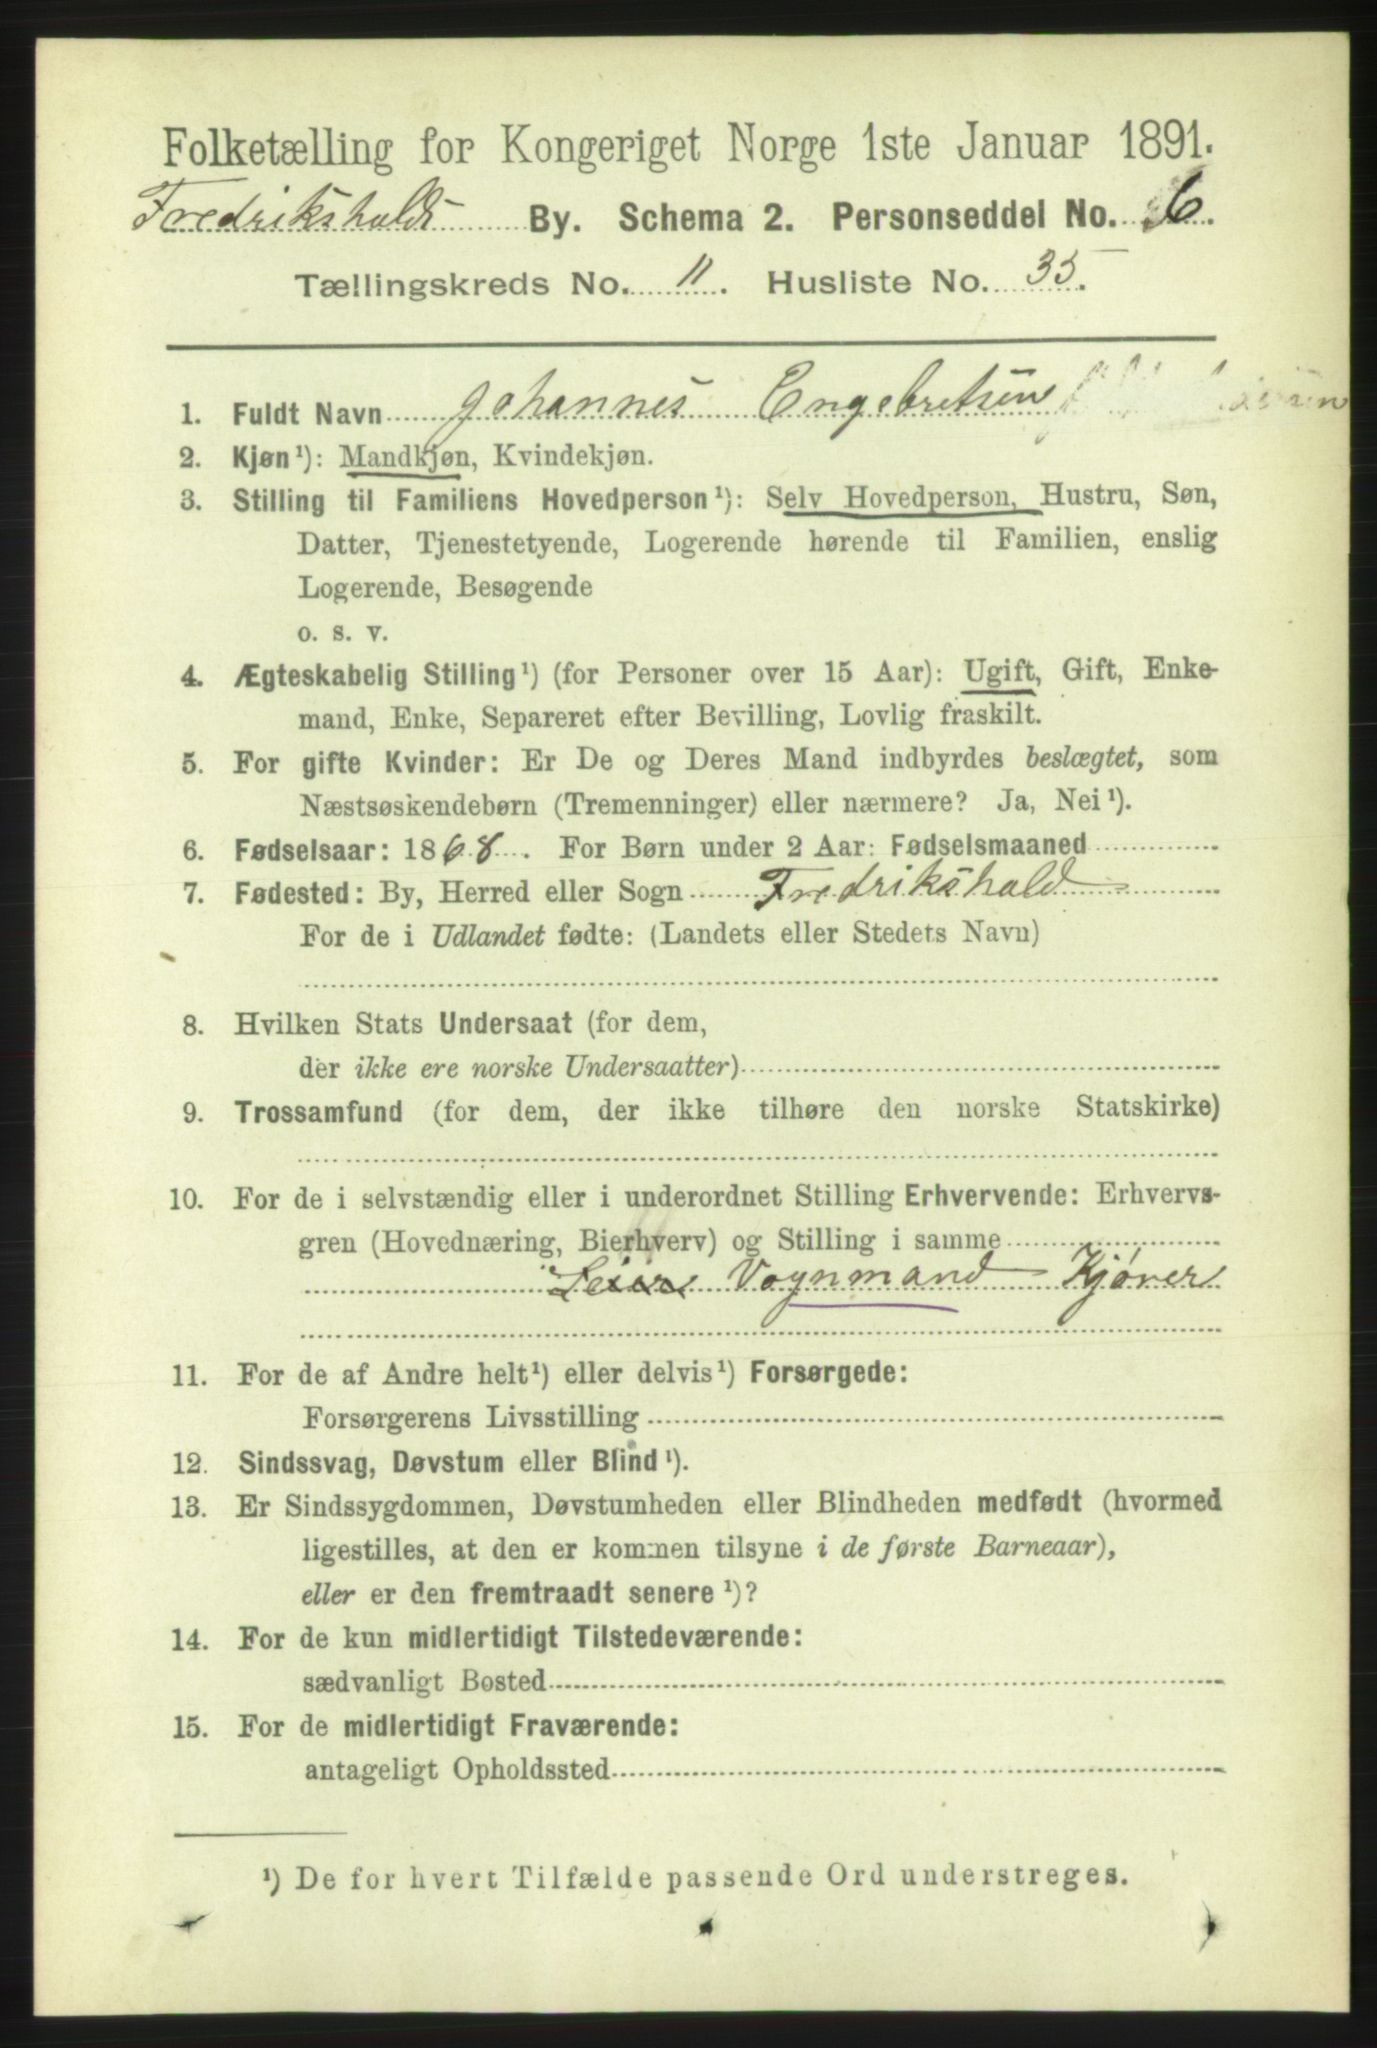 Folketælling for Kongeriget Norge 1ste Januar 1891.
Fredrikshalds By. Schema 2. Personseddel No. 6.
Tællingskreds No. 11. Husliste No. 35.
1. Fuldt Navn Johannes Engebretsen
2. Kjøn¹): Mandkjøn, Kvindekjøn.
3. Stilling til Familiens Hovedperson¹): Selv Hovedperson, Hustru, Søn,
Datter, Tjenestetyende, Logerende hørende til Familien, enslig
Logerende, Besøgende
o. s. v.
4. Ægteskabelig Stilling¹) (for Personer over 15 Aar): Ugift, Gift, Enke-
mand, Enke, Separeret efter Bevilling, Lovlig fraskilt.
5. For gifte Kvinder: Er De og Deres Mand indbyrdes beslægtet, som
Næstsøskendebørn (Tremenninger) eller nærmere? Ja, Nei¹).
6. Fødselsaar: 1868. For Børn under 2 Aar: Fødselsmaaned
7. Fødested: By, Herred eller Sogn Fredrikshald
For de i Udlandet fødte: (Landets eller Stedets Navn)
8. Hvilken Stats Undersaat (for dem,
der ikke ere norske Undersaatter)
9. Trossamfund (for dem, der ikke tilhøre den norske Statskirke)
10. For de i selvstændig eller i underordnet Stilling Erhvervende: Erhvervs-
gren (Hovednæring, Bierhverv) og Stilling i samme
Vognmand Kjører
11. For de af Andre helt¹) eller delvis¹) Forsørgede:
Forsørgerens Livsstilling
12. Sindssvag, Døvstum eller Blind¹).
13. Er Sindssygdommen, Døvstumheden eller Blindheden medfødt (hvormed
ligestilles, at den er kommen tilsyne i de første Barneaar),
eller er den fremtraadt senere¹)?
14. For de kun midlertidigt Tilstedeværende:
sædvanligt Bosted
15. For de midlertidigt Fraværende:
antageligt Opholdssted
¹) De for hvert Tilfælde passende Ord understreges.